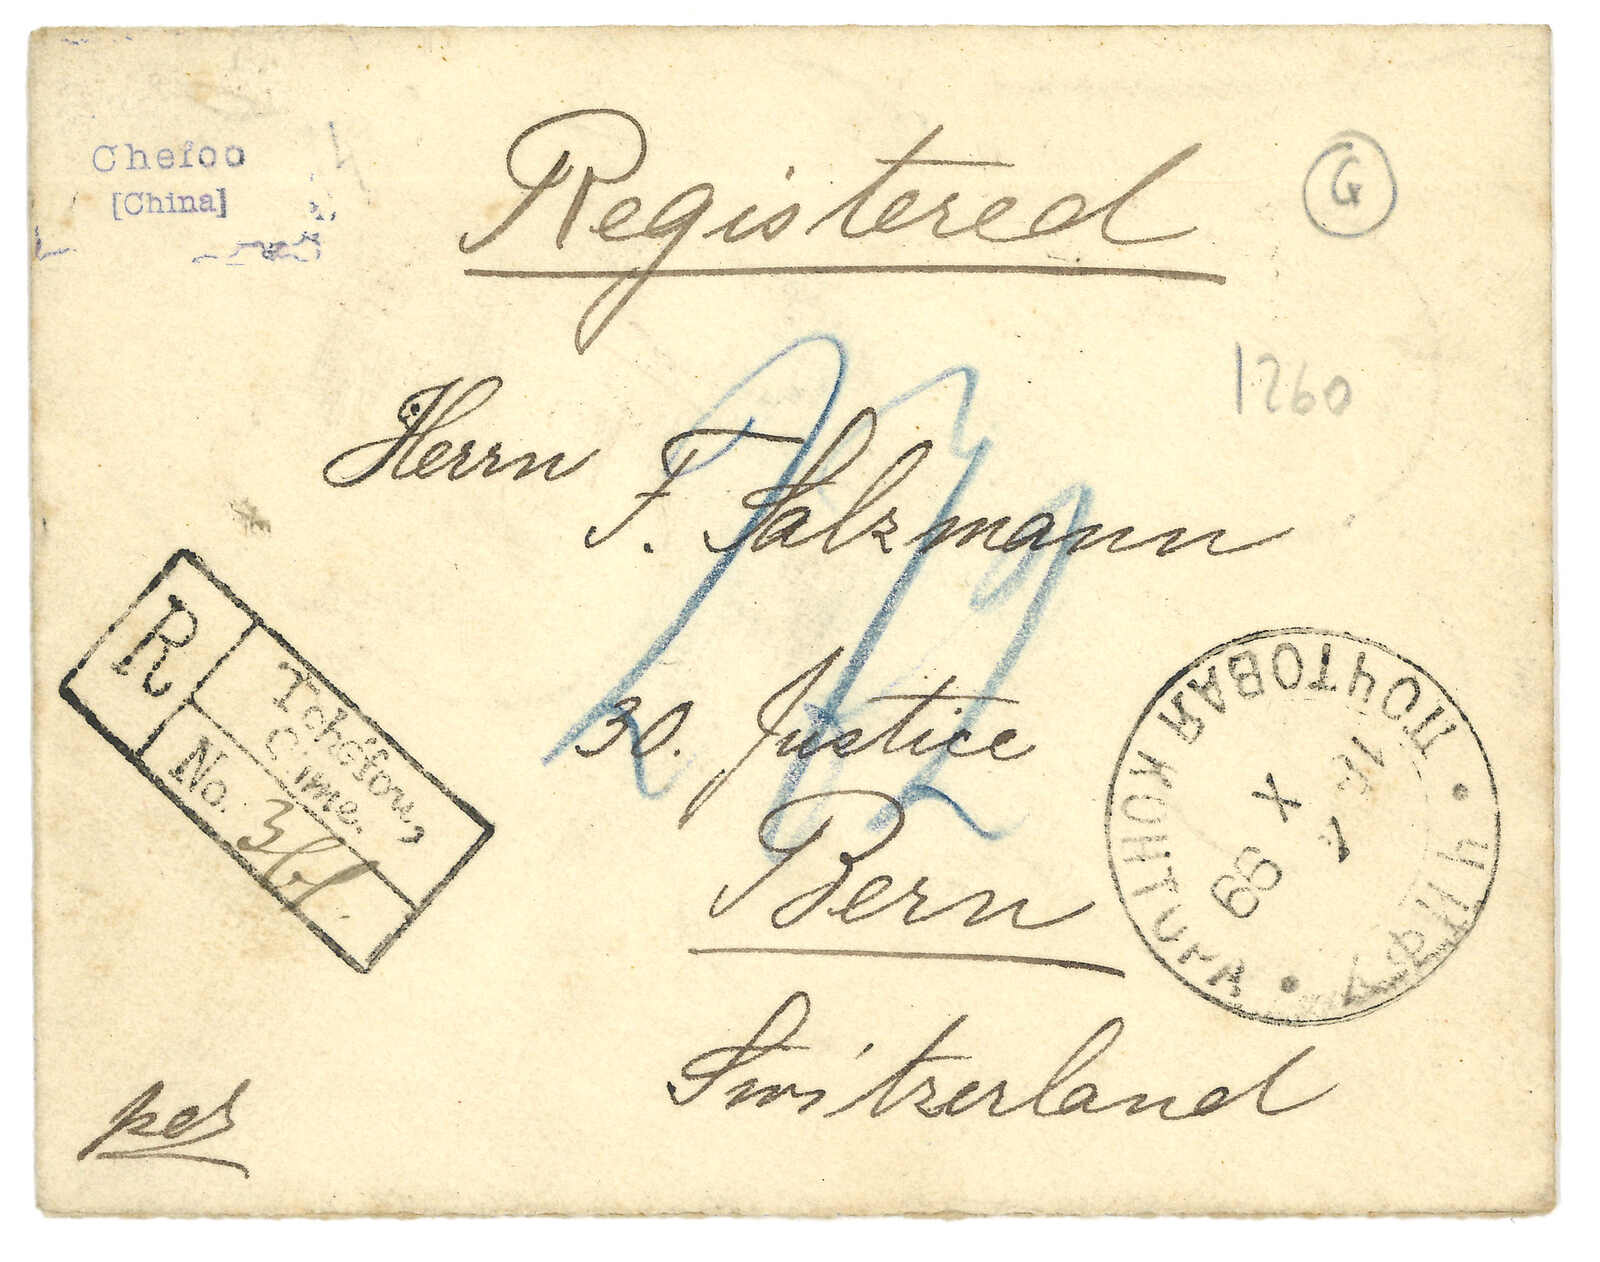 Chefoo
[China]
Registered
G
1260
Herrn
F. Salzmann
30. Justice
Bern
Switzerland
R
Tchéfou,
Chine.
No.
ПОЧТОВАЯ КОНТОРА
ЧИФУ
X
99